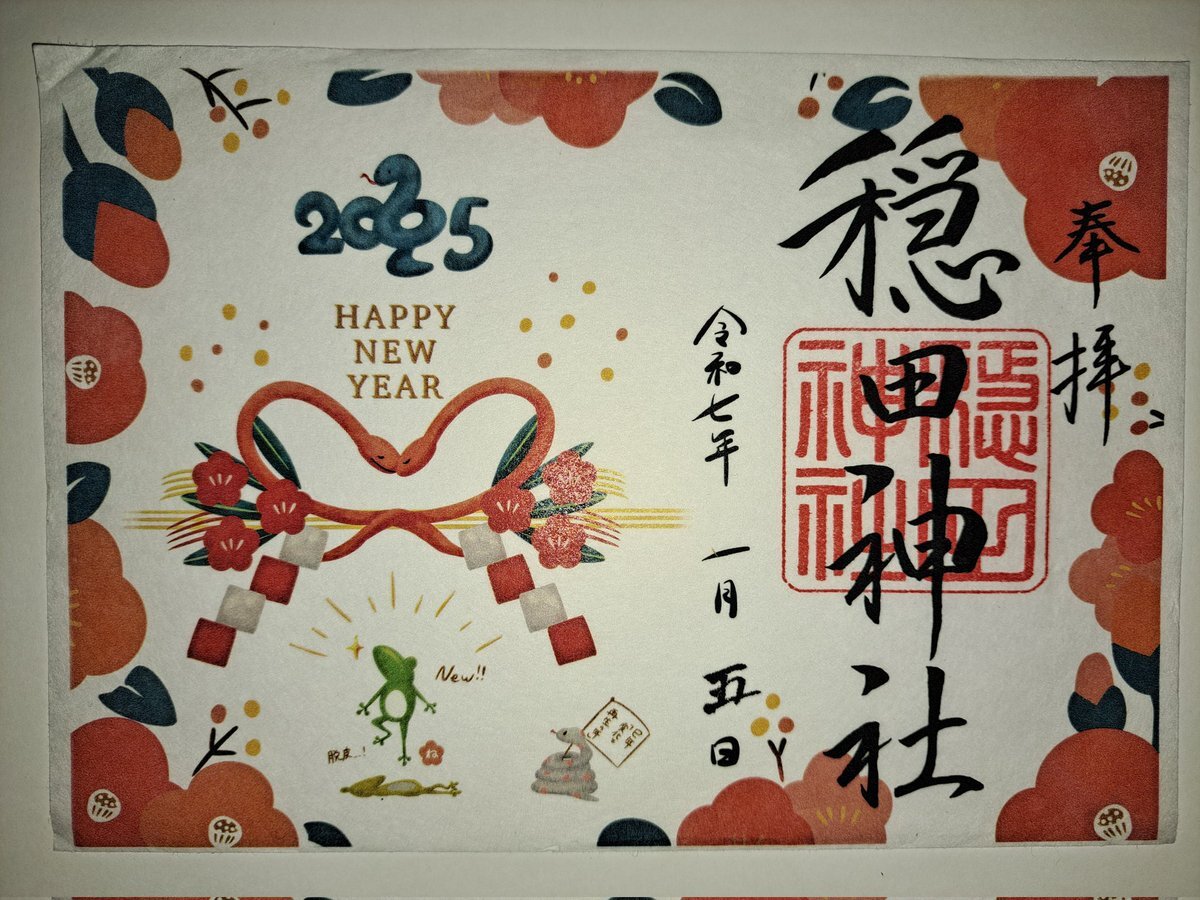 奉拝
穏田神社
令和七年 一月 五日
2025
HAPPY
NEW
YEAR
New!!
脱皮...!
ね